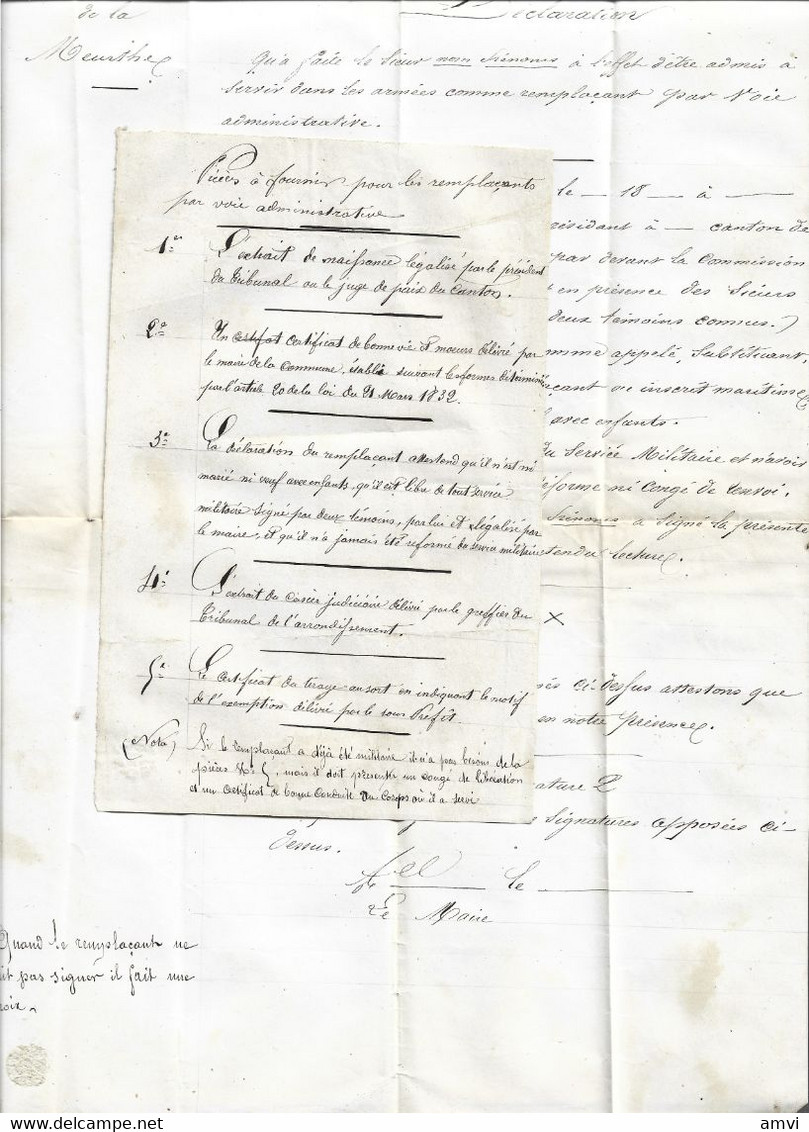 de la
Meurthe
Déclaration
Qu'a faite le Sieur nom Prénoms à l'effet d'être admis à
servir dans les armées comme remplaçant par Voie
administrative.
Pièces à fournir pour les remplaçants
par voie administrative
1º
L'extrait de naissance légalisé par le président
du Tribunal ou le juge de paix du Canton.
2º
Un certifat certificat de bonne vie et moeurs délivré par
le maire de la Commune, établi suivant les formes déterminées
par l'article 20 de la loi du 21 Mars 1832.
3º
La déclaration du remplaçant attestend qu'il n'est ni
marié ni veuf avec enfants, qu'il est libre de tout service
militaire signé par deux témoins, par lui et légalisé par
le maire, et qu'il n'a jamais été réformé du service militaire
4º
L'extrait du casier judiciaire délivré par le greffier du
Tribunal de l'arrondissement.
5º
Le certificat du tirage au sort en indiquant le motif
de l'exemption délivré par le sous Préfêt
(Nota)
Si le remplaçant a déjà été militaire il n'a pas besoin de la
pièces Nº 5, mais il doit présenter un congé de libération
et un certificat de bonne conduite du Corps où il a servi
le — 18 — à —
résidant à — canton de
par devant la Commission
en présence des Sieurs
deux témoins connus.)
comme appelé, Substituant,
çant ou inscrit maritime
avec enfants.
du Service Militaire et n'avoir
éforme ni Congé de renvoi.
Prénoms a signé la présente
tendu lecture.
×
és ci-dessus attestons que
en notre présence.
nature 2
signatures apposées ci-
dessus.
le
Le Maire
Quand le remplaçant ne
it pas signer il fait une
roix.
amvi